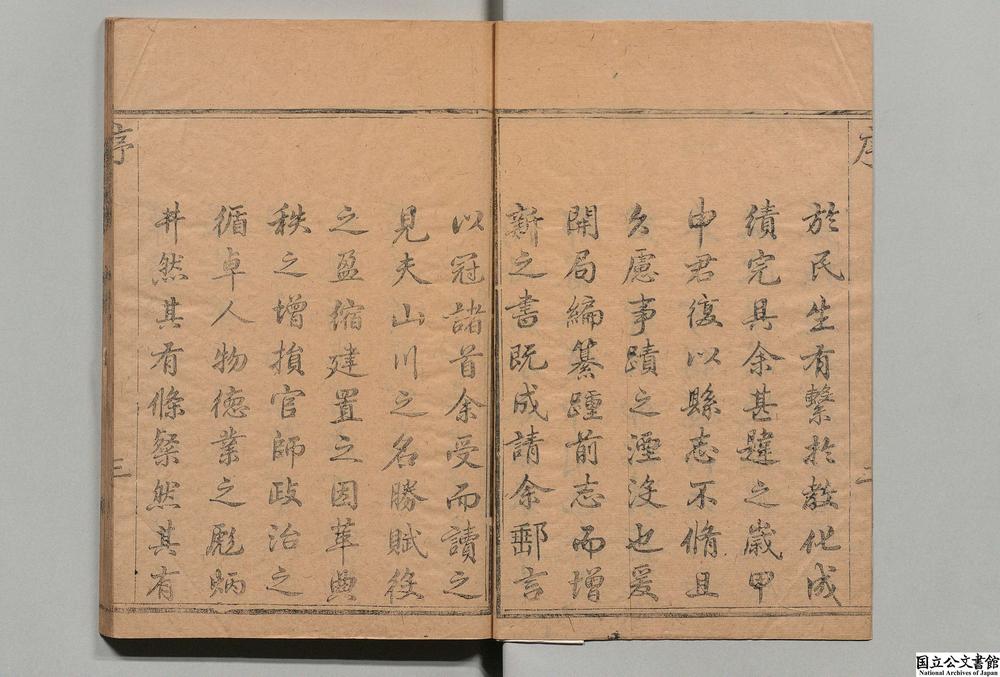 於民生有繫於教化成
績完具余甚韙之歲甲
申君復以縣志不脩且
久慮事蹟之湮沒也爰
開局編纂踵前志而增
新之書既成請余郵言
以冠諸首余受而讀之
見夫山川之名勝賦役
之盈縮建置之因革典
秩之增損官師政治之
循卓人物德業之彪炳
井然其有條粲然其有
序
二
序
三
国立公文書館
National Archives of Japan